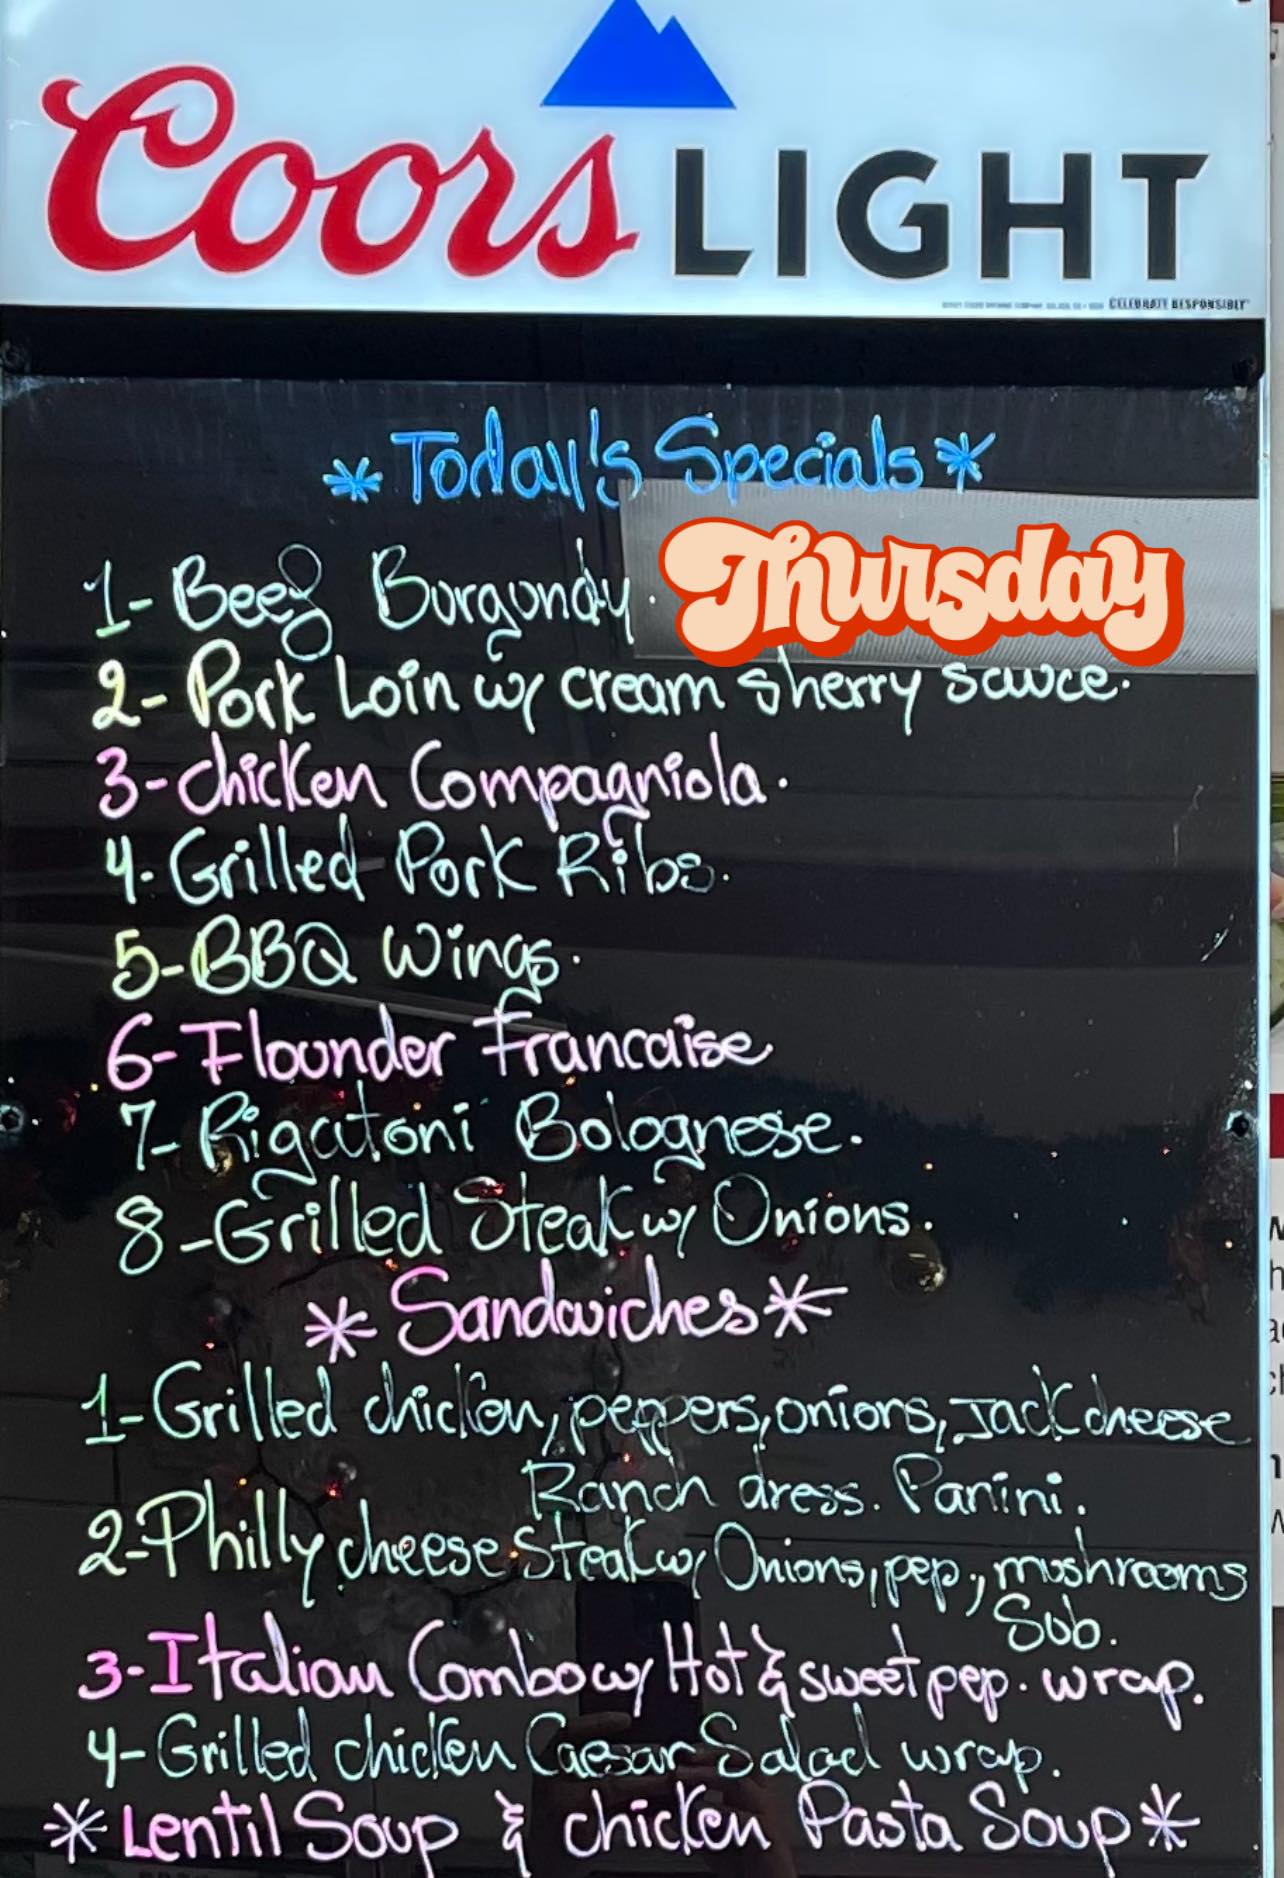 Coors LIGHT
CELEBRATE RESPONSIBLY
* Today's Specials *
1- Beef Burgundy.
Thursday
2- Pork Loin w/ cream sherry sauce.
3- chicken Compagniola.
4- Grilled Pork Ribs.
5- BBQ Wings.
6- Flounder Francaise
7- Rigatoni Bolognese.
8- Grilled Steak w/ Onions.
* Sandwiches *
1- Grilled chicken, peppers, onions, Jack cheese
Ranch dress. Panini.
2- Philly cheese Steak w/ Onions, pep., mushrooms
Sub.
3- Italian Combo w/ Hot & sweet pep. wrap.
4- Grilled chicken Caesar Salad wrap.
* Lentil Soup & chicken Pasta Soup *